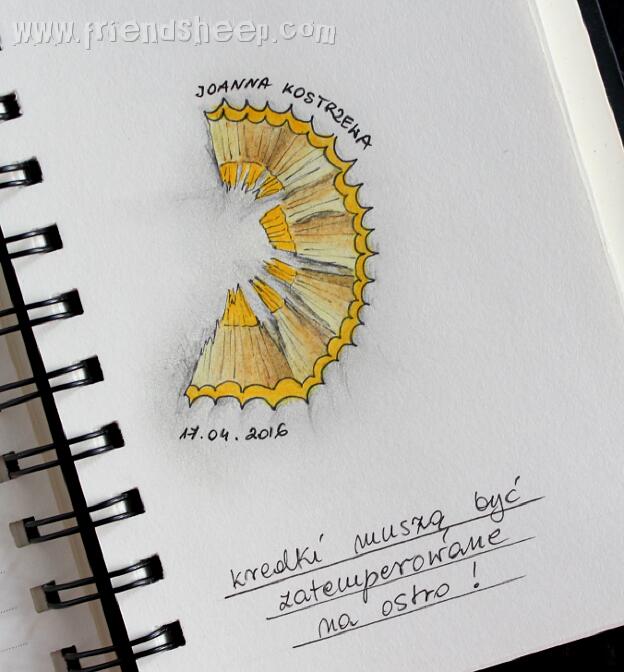 www.friendsheep.com
JOANNA KOSTRZEWA
17.04.2016
kredki muszą być
zatemperowane
na ostro!